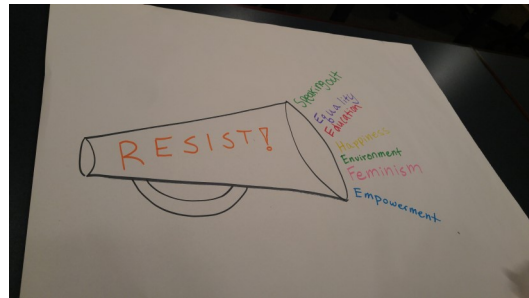 RESIST!
Speaking out
Equality
Education
Happiness
Environment
Feminism
Empowerment